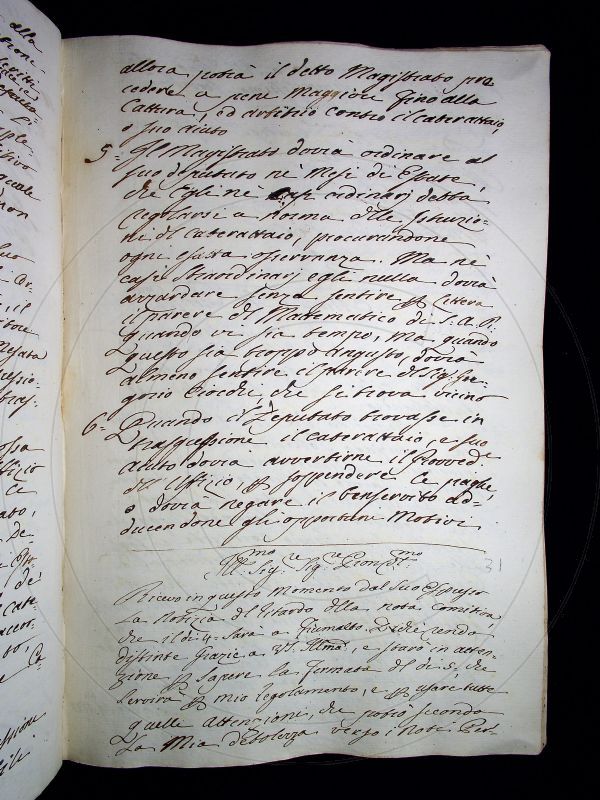 allora potrà il detto Magistrato pro
cedere a pene Maggiori fino alla
Cattura, ed arbitrio contro il caterattaio,
o suo aiuto
5.a Il Magistrato dovrà ordinare al
suo deputato ne Mesi di Estate,
che Egli ne casi ordinarj debba
regolarsi a Norma delle Istruzio-
ni del caterattaio, procurandone
ogni esatta osservanza. Ma ne
casi straordinarj egli nulla dovrà
azzardare senza sentire per lettera
il parere del Matematico di S. A. R.
quando vi sia tempo, ma quando
questo sia troppo angusto, dovrà
almeno sentire il parere del Sig. Gre-
gorio Ciocchi, che si trova vicino
6.a Quando il Deputato trovasse in
trasgressione il caterattaio, e suo
aiuto dovrà avvertirne il Provved.re
dell'Uffizio, per sospendere le paghe,
o dovrà negare il benservito ad-
ducendone gli opportuni Motivi.
Ill.mo Sig.re Sig.re Pron Col.mo
Ricevo in questo Momento dal suo Espresso
La Notizia del ritardo della nota Comitiva
che il dì 4. sarà a Fiumalto. Di che rendo
distinte grazie a VS. Illma, e starò in atten-
zione per sapere la fermata del dì 5., che
servirà per mio regolamento, e per usare tutte
quelle attenzioni, che potrò secondo
La Mia debolezza verso i Noti Per-
31